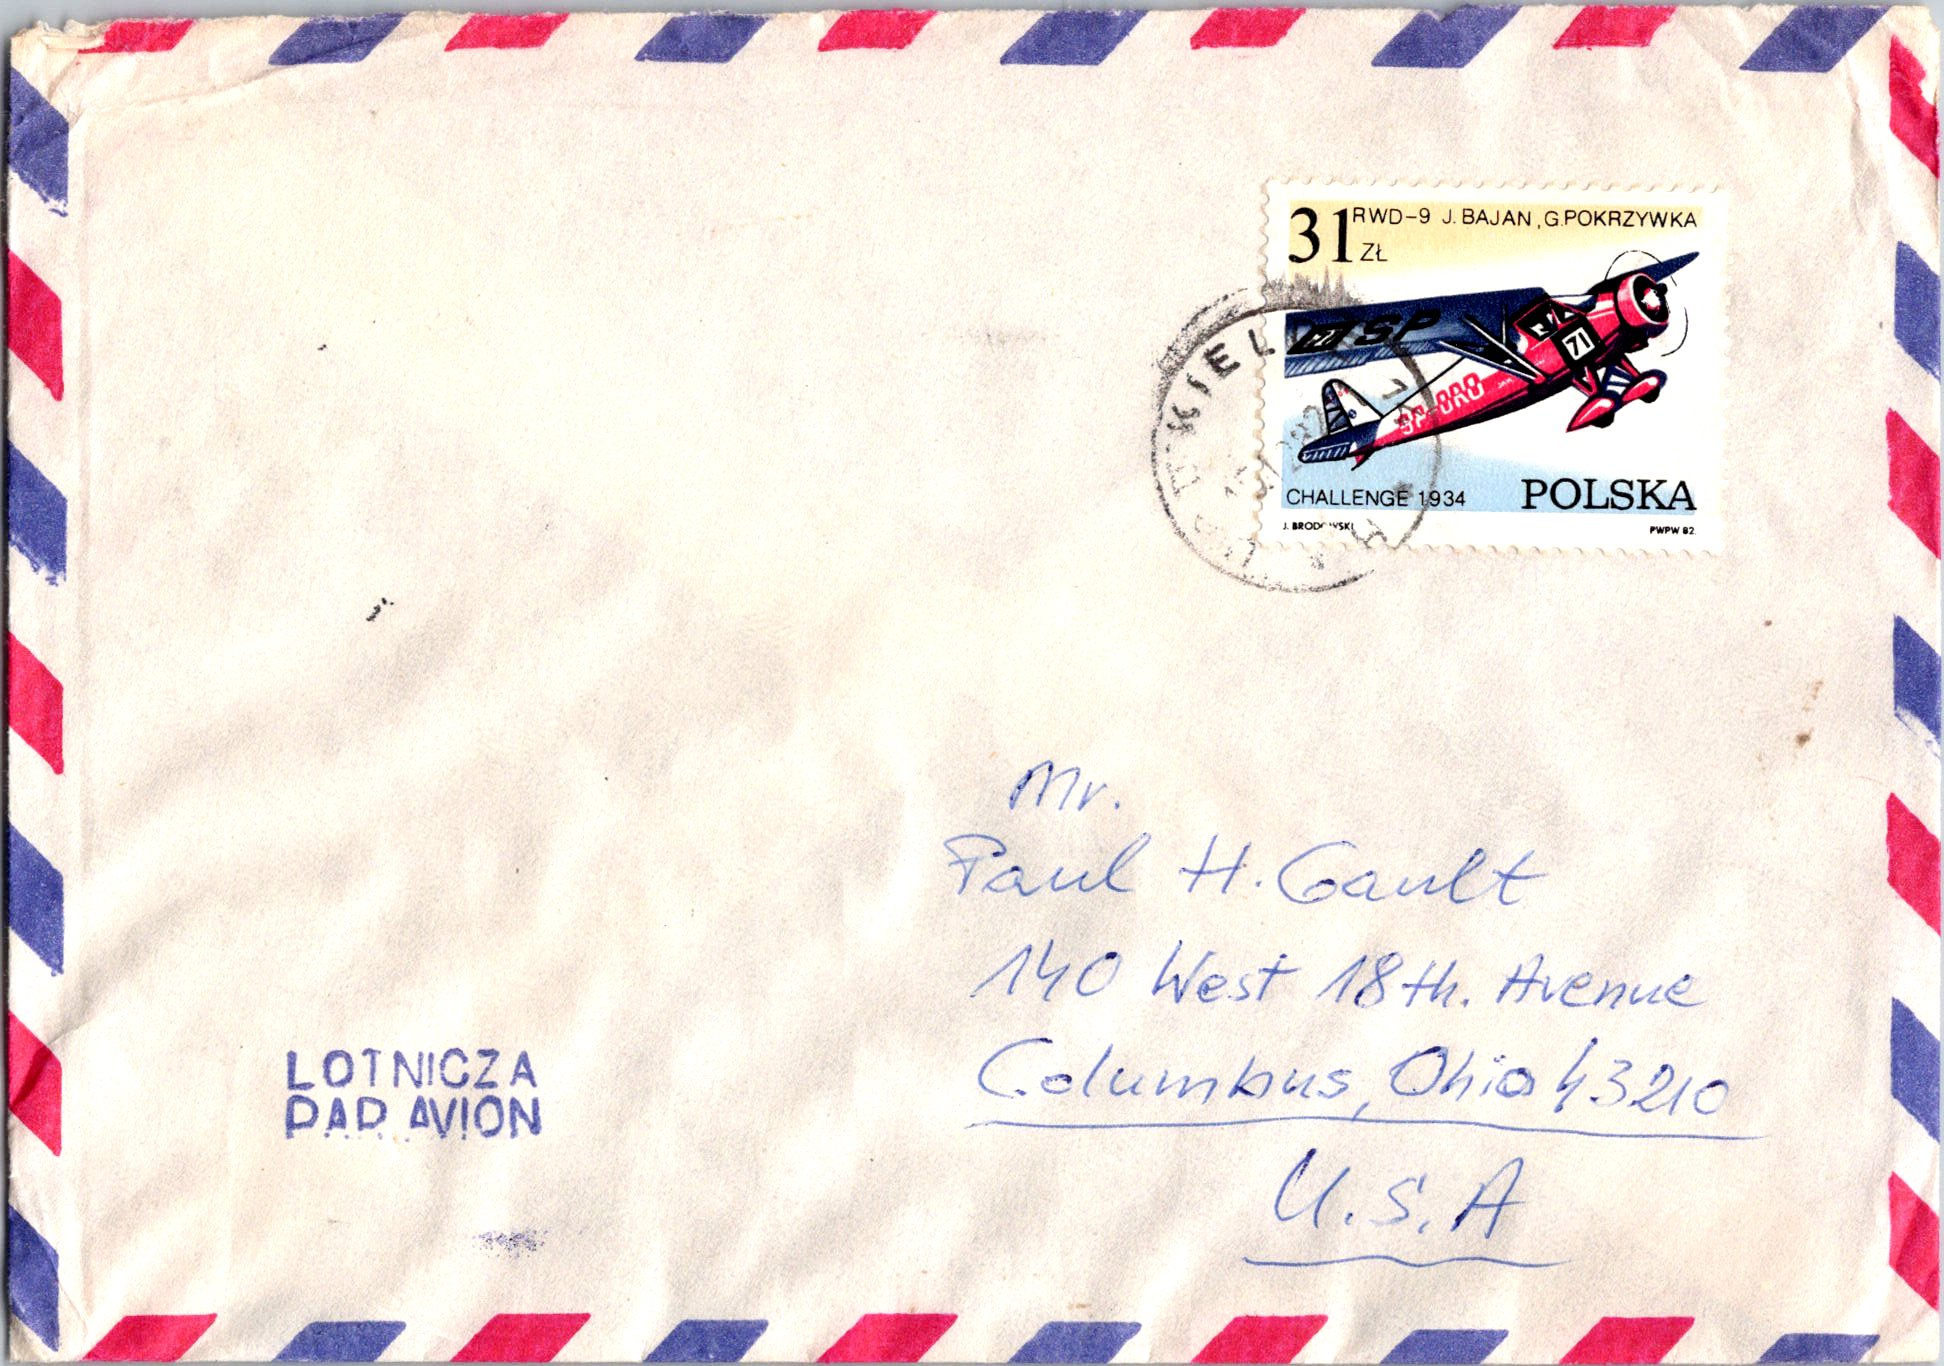 31 ZŁ RWD-9 J. BAJAN, G. POKRZYWKA
SP
71
SP-DRD
CHALLENGE 1934 POLSKA
J. BRODOWSKI PWPW 82
Mr.
Paul H. Gault
140 West 18th. Avenue
Columbus, Ohio 43210
U.S.A
LOTNICZA
PAR AVION